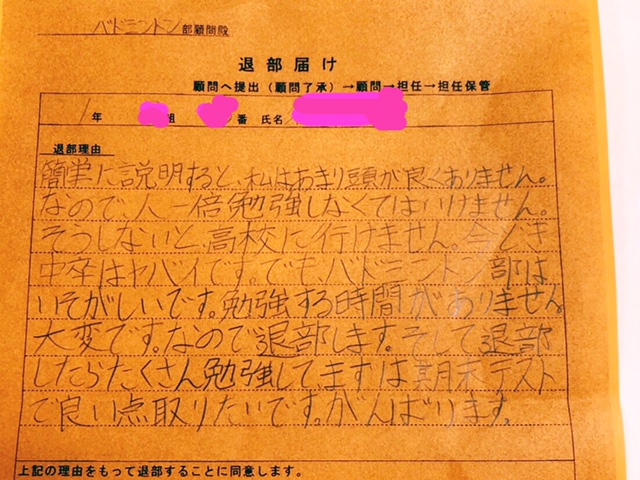 バドミントン部顧問殿
退部届け
顧問へ提出（顧問了承）→顧問→担任→担任保管
1年 組 番 氏名
退部理由
簡単に説明すると、私はあまり頭が良くありません。
なので、人一倍勉強しなくてはいけません。
そうしないと、高校に行けません。今どき
中卒はヤバイです。でも、バドミントン部は
いそがしいです。勉強する時間がありません。
大変です。なので退部します。そして退部
したらたくさん勉強して、まずは期末テスト
で良い点取りたいです。がんばります。
上記の理由をもって退部することに同意します。